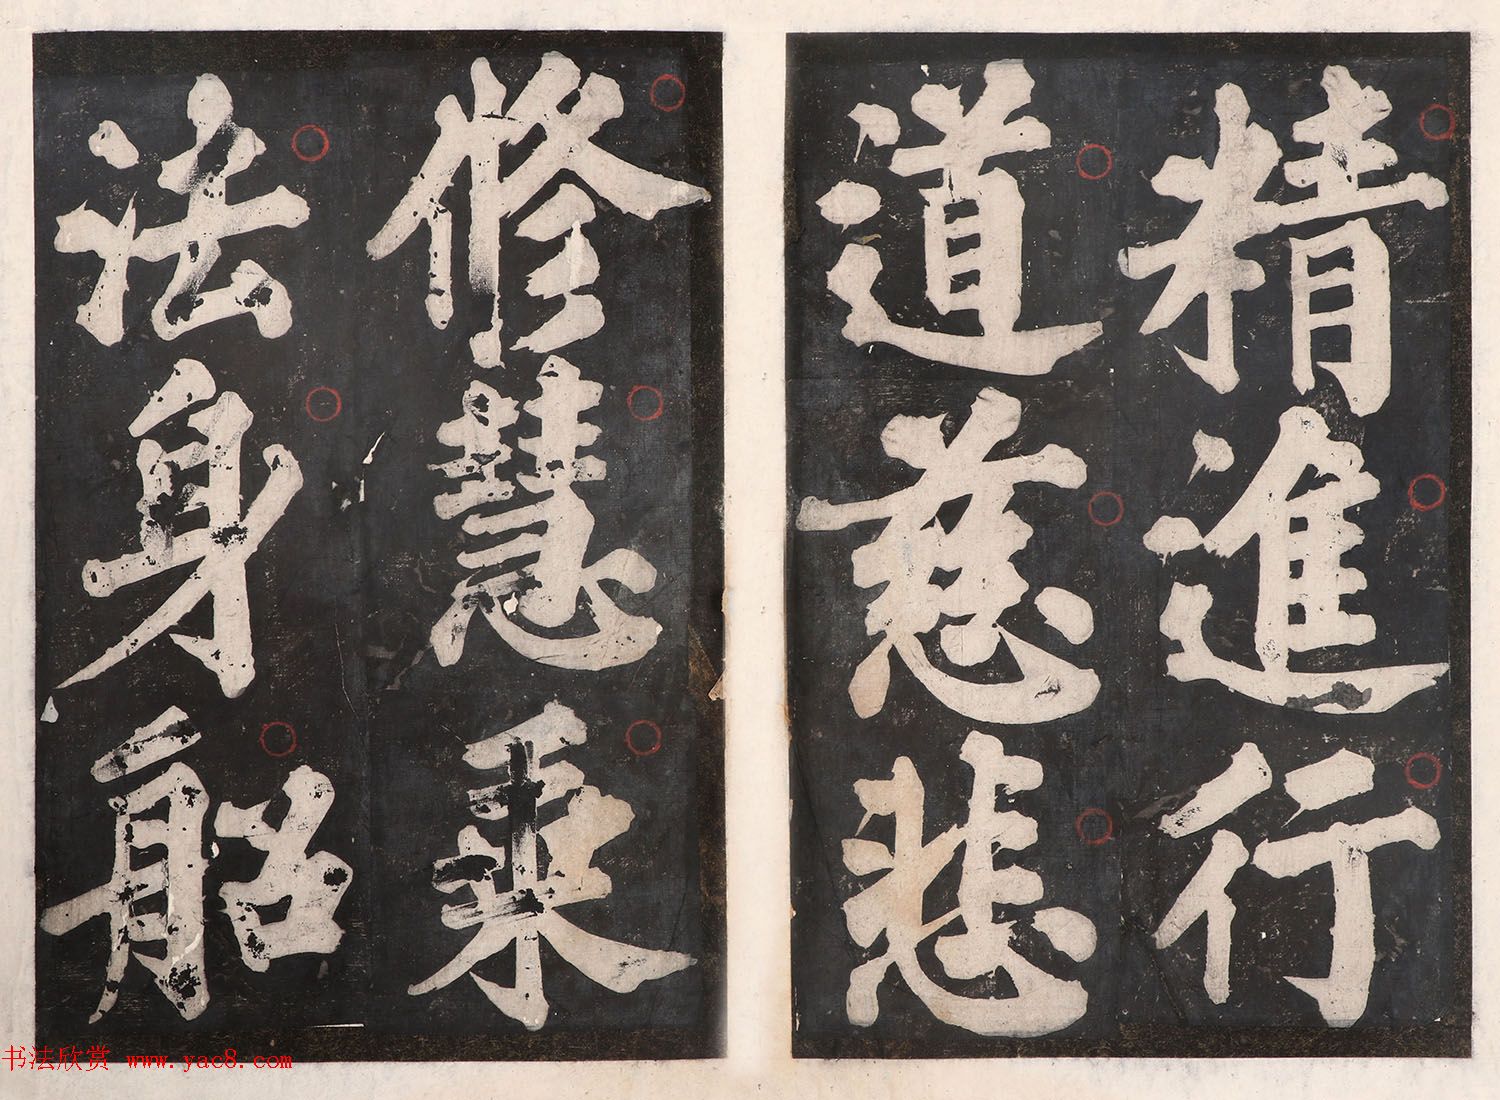 精進行
道慈悲
修慧乗
法身船
书法欣赏 www.yac8.com